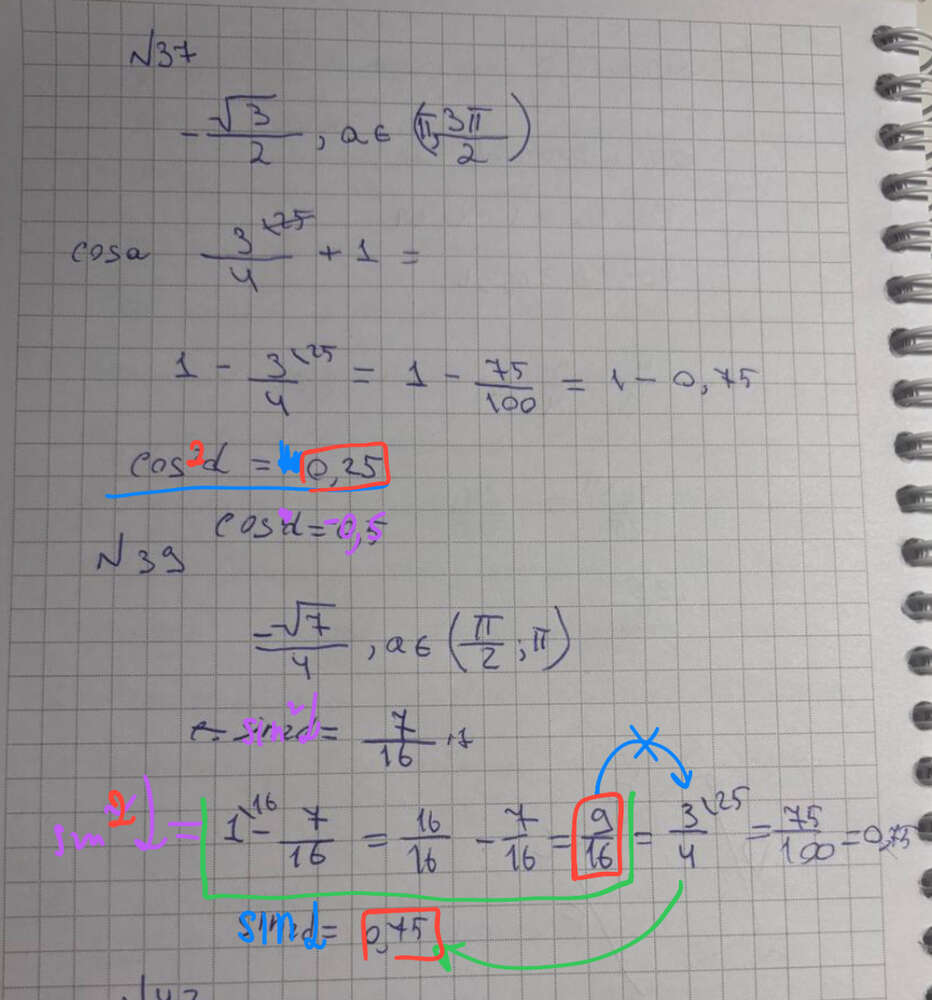 N37
-√3/2, a∈(π; 3π/2)
cosa 3/4 + 1 =
1 - 3\25/4 = 1 - 75/100 = 1 - 0,75
cos²α = 0,25
cosα = -0,5
N39
-√7/4, a∈(π/2; π)
sin²α = 7/16
sin²α = 1\16 - 7/16 = 16/16 - 7/16 = 9/16 = 3\25/4 = 75/100 = 0,75
sinα = 0,75